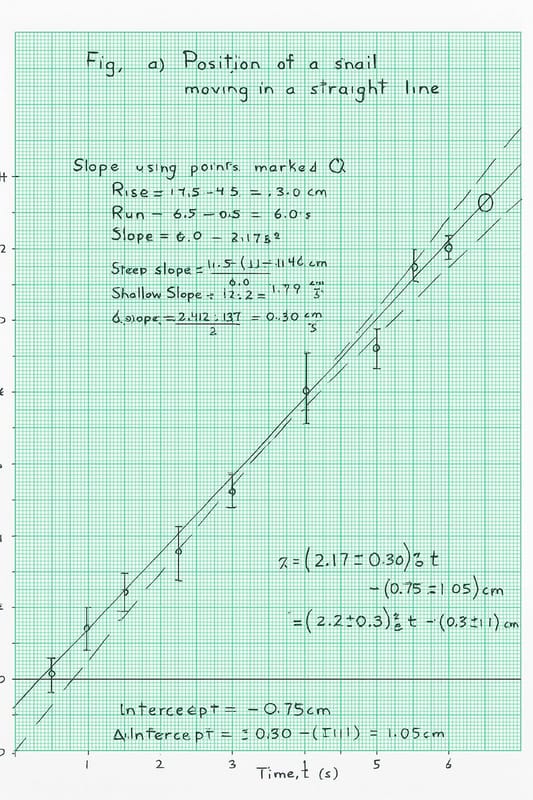 Fig, a) Position of a snail
moving in a straight line
Slope using points marked
Rise = 17.5 - 4 5 = . 3.0 cm
Run - 6.5 - 0.5 = 6.0 s
Slope = 6.0 - 2.17
Steep slope =
6.0
Shallow Slope ÷ 12.2 = 1.79 cm/s
2.412 : 137 = 0.30 cm/s
2
= (2.17 ± 0.30) t
- (0.75 = 1 05) cm
= (2.2 ± 0.3) t - (0.3 ± 1 1) cm
Intercept = - 0.75 cm
Δ Intercept = ± 0.30 - = 1.05 cm
1 2 3 5 6
Time, t (s)